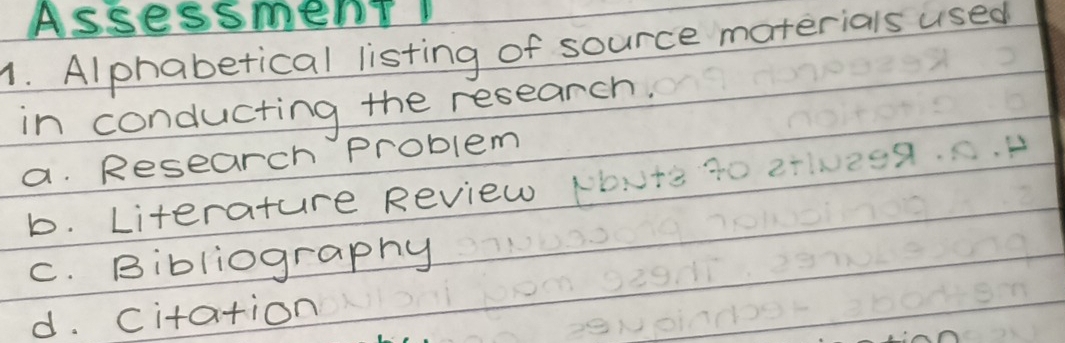 Assessment 1
1. Alphabetical listing of source materials used
in conducting the research.
a. Research Problem
b. Literature Review
c. Bibliography
d. Citation